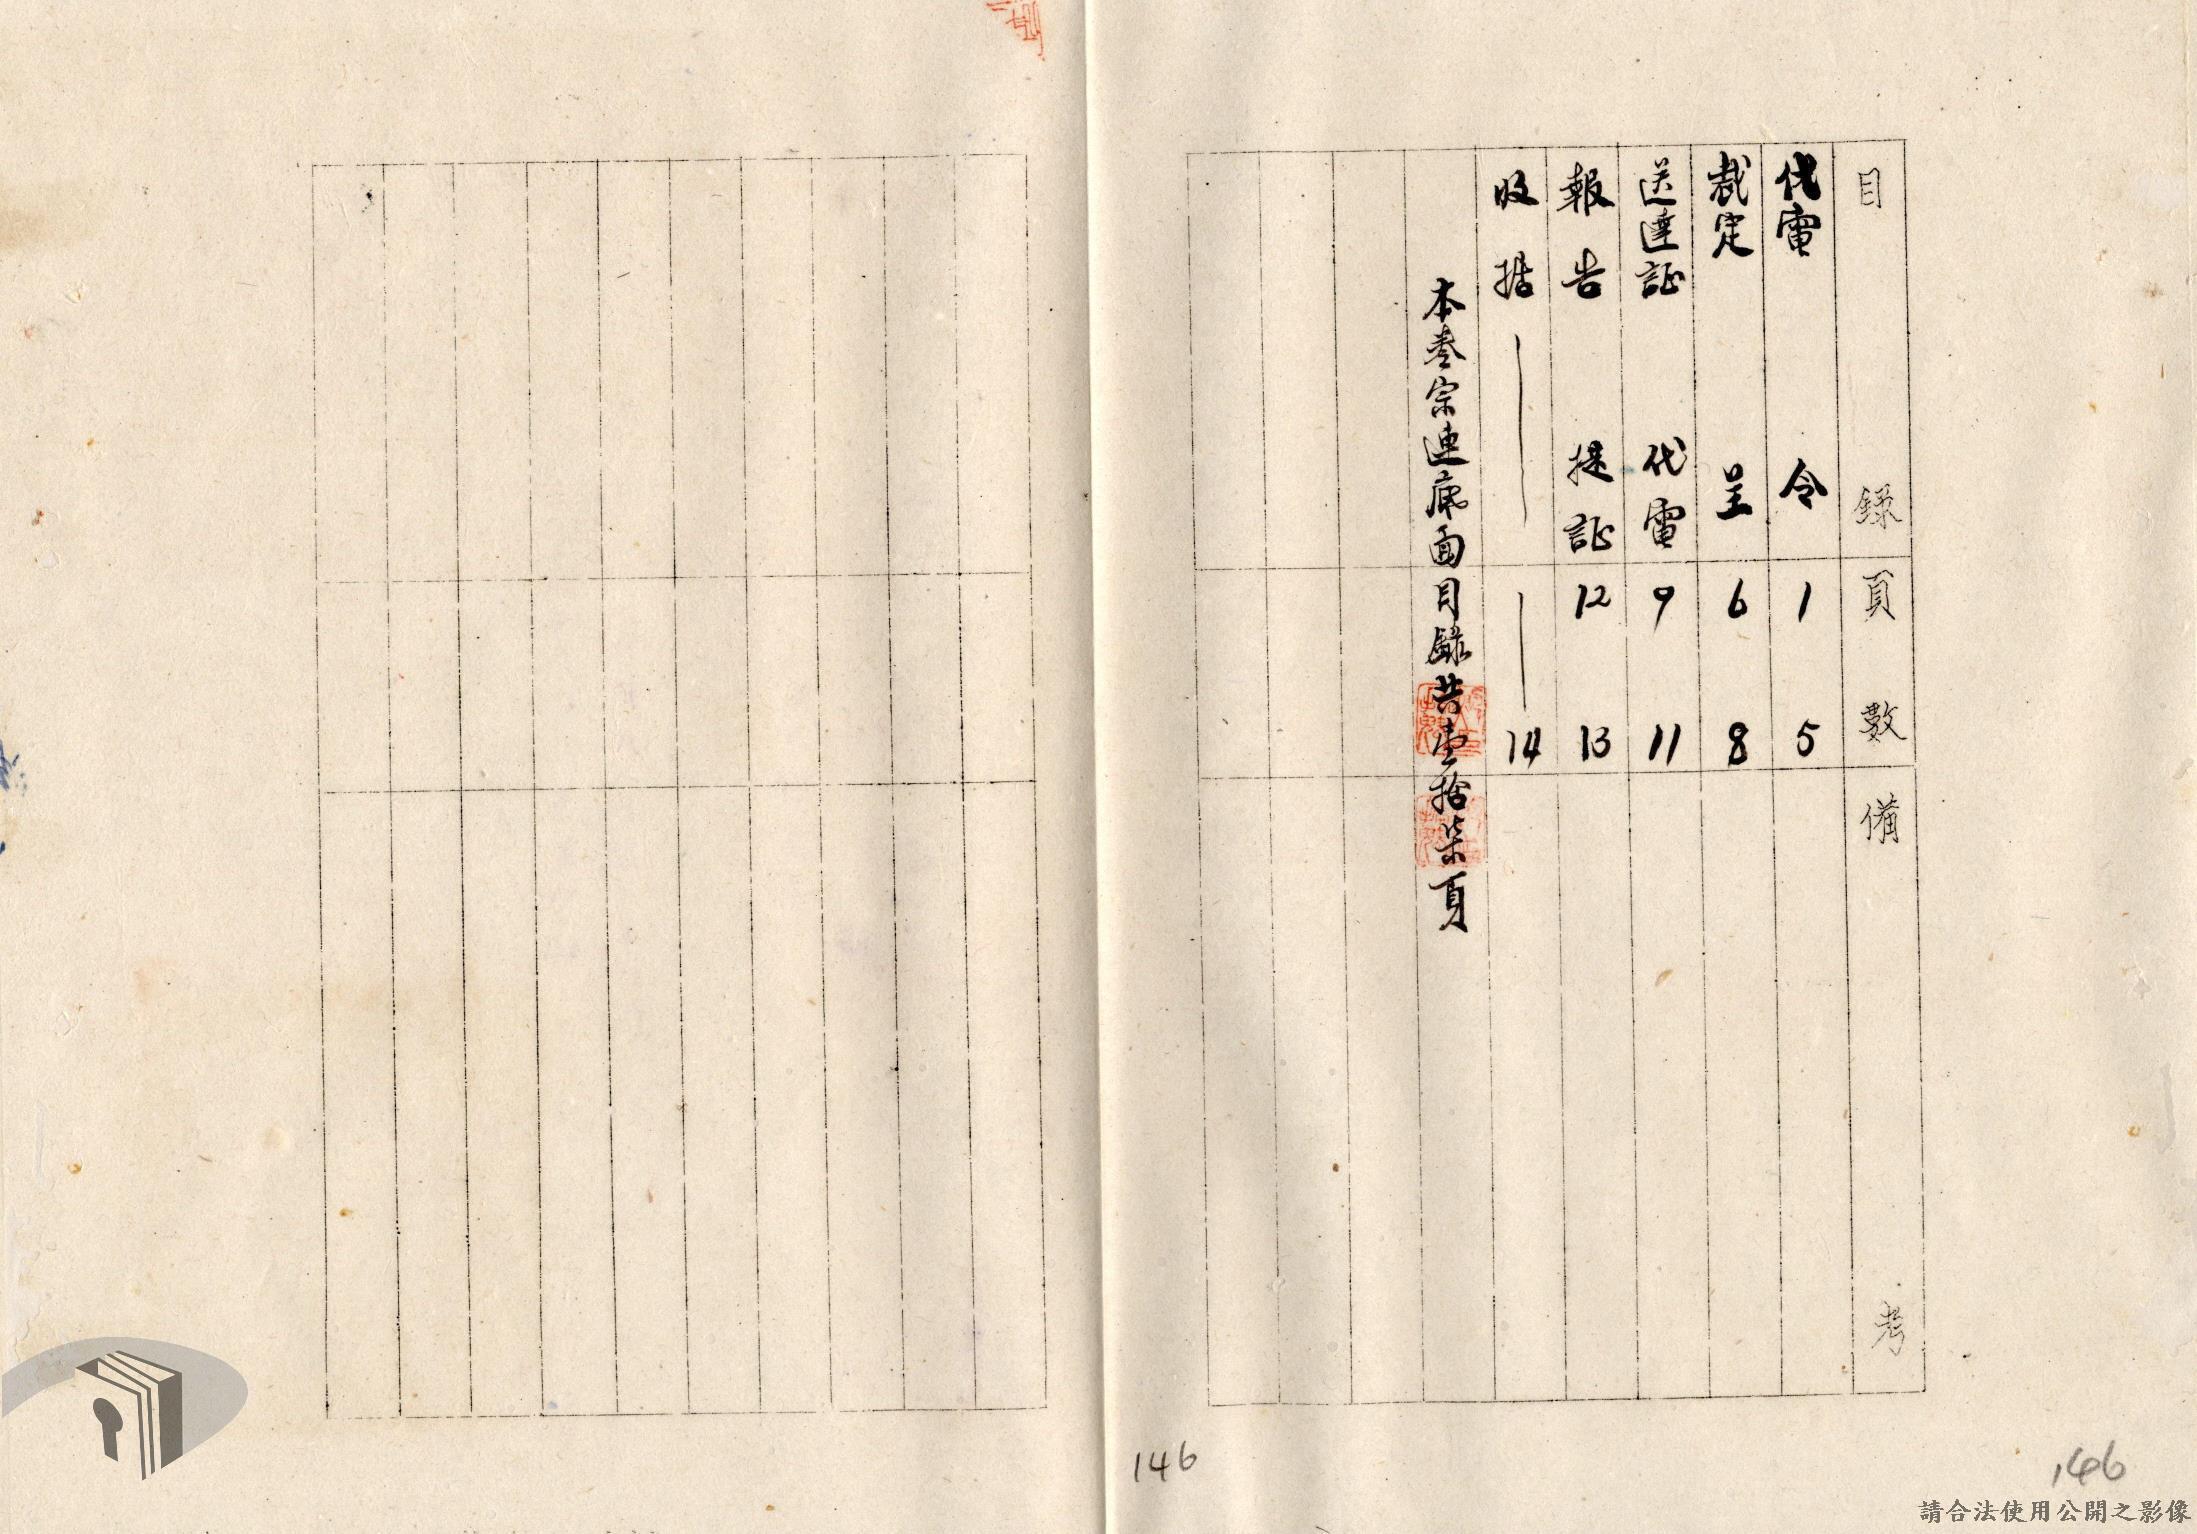 目錄 頁數 備考
代電 令 1 5
裁定 呈 6 8
送達証 代電 9 11
報告 提証 12 13
收据 14
本卷宗連底面目錄共壹拾柒頁
146
146
請合法使用公開之影像